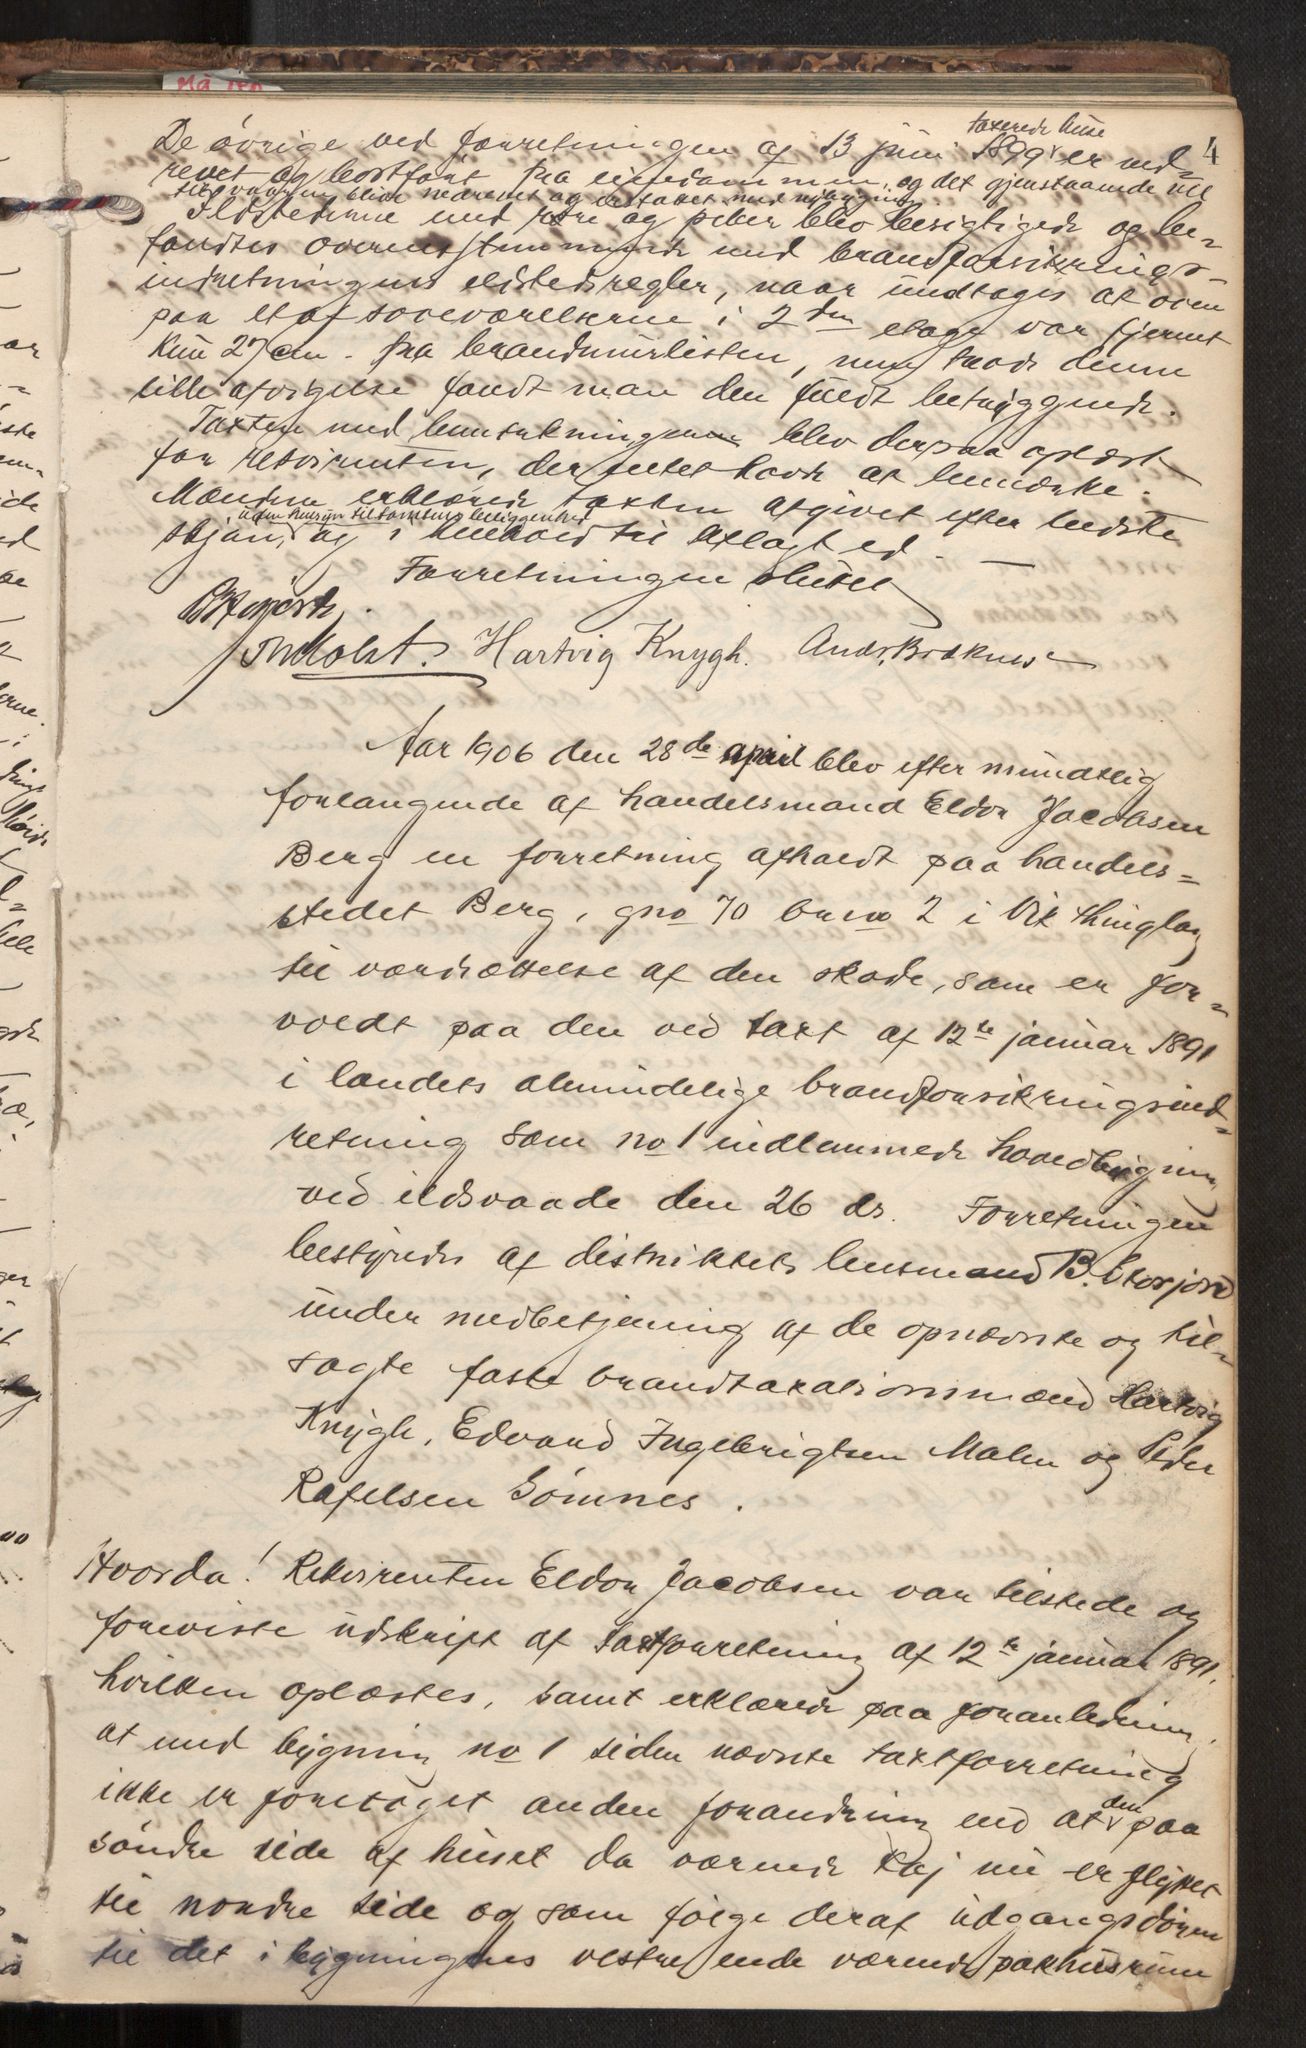 4
taxerede huse
De øvrige ved forretningen af 13 juni 1899 er ned-
revet og bortført fra eiendommen, og det gjenstaaende vil
blive nedrevet og erstattet med nybygning
Ildstederne med røre og piber blev besigtigede og be-
fandtes overensstemmende med brandforsikrings-
indretningens ildstedsregler, naar undtages at ovnen
paa et af soveværelserne i 2den etage var fjernet
kun 27 cm. fra brandmurlisten, men trods denne
lille afvigelse fandt man den fuldt betryggende.
Taxten med bemerkningerne blev derpaa oplæst
for rekvirenten, der intet havde at bemærke.
Mændene erklærede taxten afgivet efter bedste
uden hensyn til tomtens beliggenhed
skjøn, og i henhold til aflagt ed. —
Forretningen sluttet
B Storjord.
Hartvig Knygh. Ands. Brøknes
Aar 1906 den 28de april blev efter mundtlig
forlangende af handelsmand Eldor Jacobsen
Berg en forretning afholdt paa handels=
stedet Berg, gno 70 bruno 2 i Vik thinglag
til værdsættelse af den skade, som er for-
voldt paa den ved taxt af 12te januar 1891
i landets almindelige brandforsikringsind-
retning som no 1 indlemmede hovedbygning
ved ildsvaade den 26 ds. Forretningen
bestyredes af distriktets lensmand B. Storjord
under medbetjening af de opnævnte og til-
sagte faste brandtaxationsmænd Hartvig
Knygh, Edvard Ingebrigtsen Malm og Peder
Rafelsen Sømnes.
Hvorda! Rekvirenten Eldor Jacobsen var tilstede og
foreviste udskrift af taxtforretning af 12te januar 1891,
hvilken oplæstes, samt erklærede paa foranledning,
at med bygning no 1 siden nævnte taxtforretning
ikke er foretaget anden forandring end at den paa
søndre side af huset da værende kaj nu er flyttet
til nordre side og som følge deraf udgangsdøren
til det i bygningens vestre ende værende pakhusrum